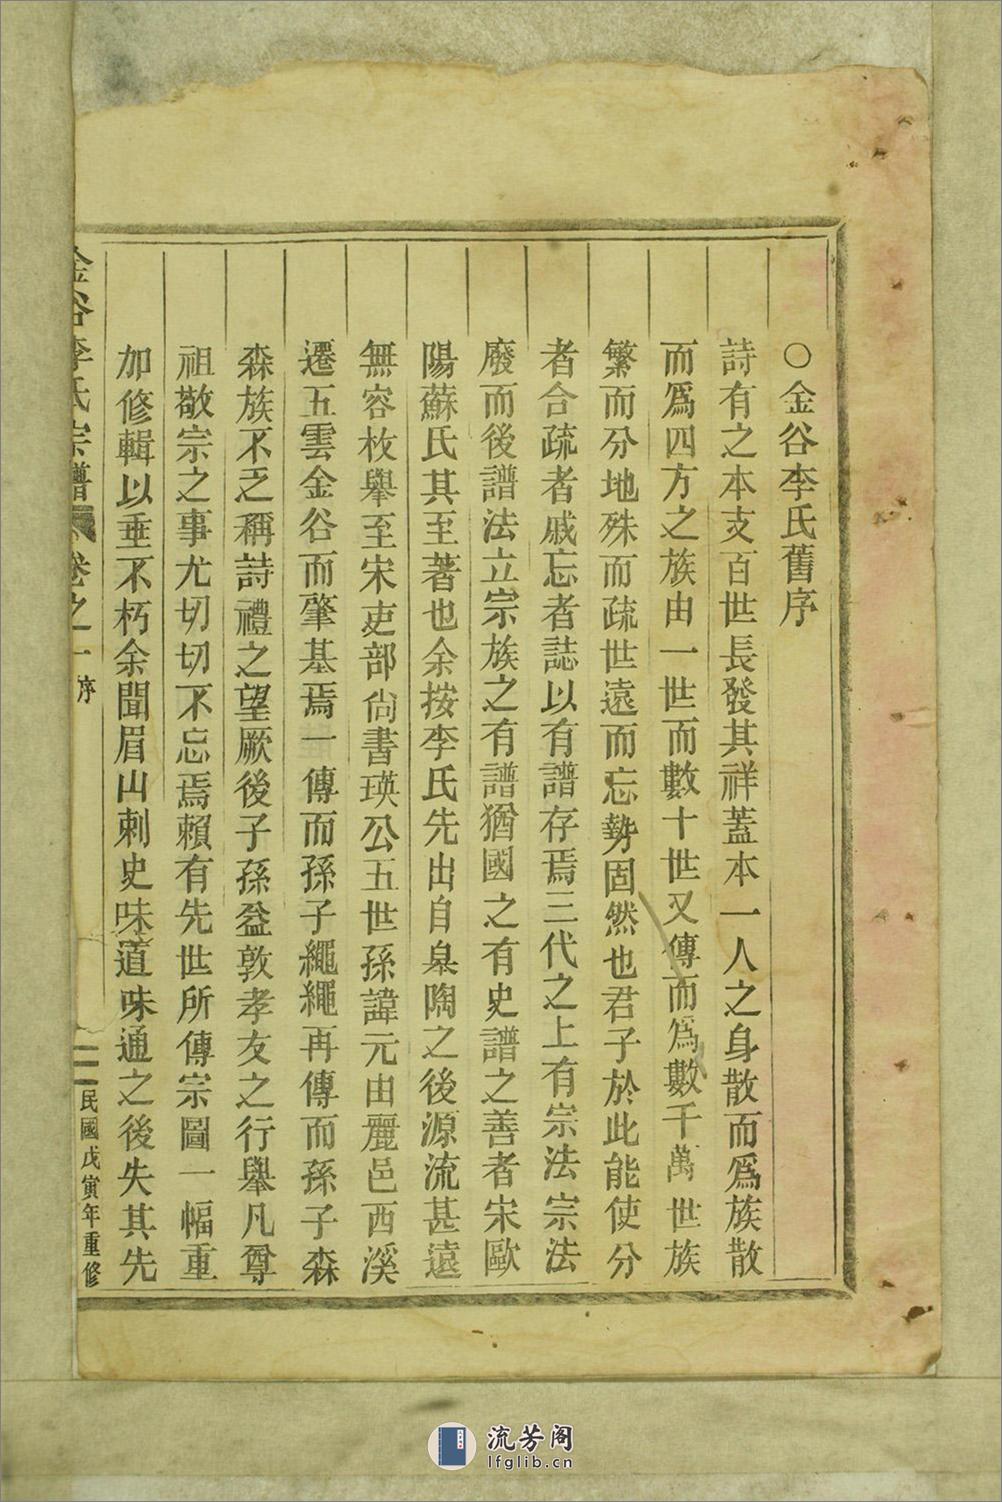 ○金谷李氏舊序
詩有之本支百世長發其祥蓋本一人之身散而爲族散
而爲四方之族由一世而數十世又傳而爲數千萬世族
繁而分地殊而疏世遠而忘勢固然也君子於此能使分
者合疏者戚忘者誌以有譜存焉三代之上有宗法宗法
廢而後譜法立宗族之有譜猶國之有史譜之善者宋歐
陽蘇氏其至著也余按李氏先出自臯陶之後源流甚遠
無容枚舉至宋吏部尙書瑛公五世孫諱元由麗邑西溪
遷五雲金谷而肇基焉一傳而孫子繩繩再傳而孫子森
森族不乏稱詩禮之望厥後子孫益敦孝友之行舉凡尊
祖敬宗之事尤切切不忘焉賴有先世所傳宗圖一幅重
加修輯以垂不朽余聞眉山刺史味道味通之後失其先
金谷李氏宗譜 卷之一 序 二 民國戊寅年重修
流芳阁
lfglib.cn